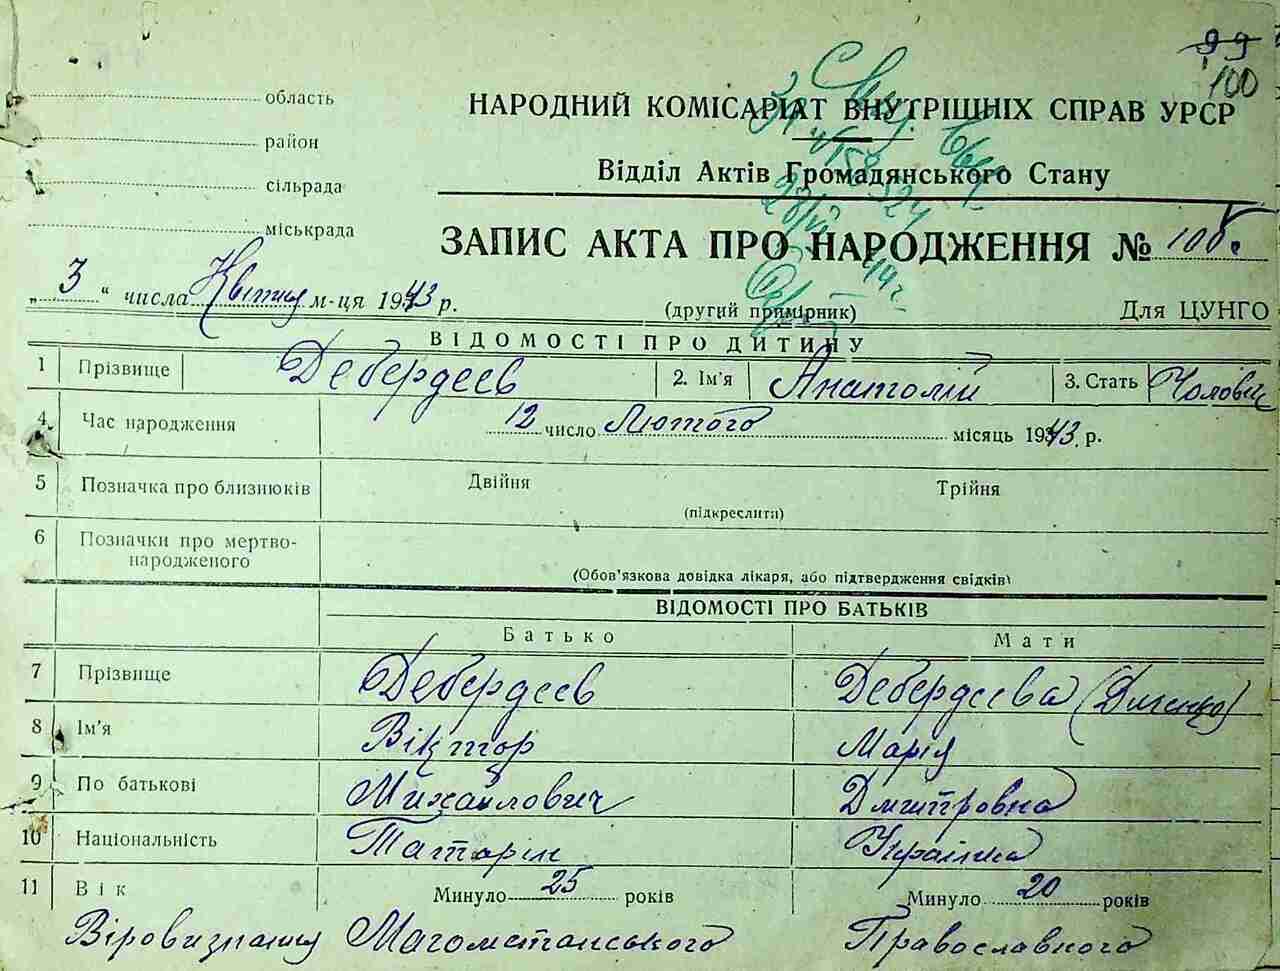 99
100
область
район
сільрада
міськрада
НАРОДНИЙ КОМІСАРІАТ ВНУТРІШНІХ СПРАВ УРСР
Відділ Актів Громадянського Стану
ЗАПИС АКТА ПРО НАРОДЖЕННЯ № 100
„3“ числа Квітня м-ця 1943 р.
(другий примірник) Для ЦУНГО
ВІДОМОСТІ ПРО ДИТИНУ
1 Прізвище Дебердеєв 2. Ім'я Анатолій 3. Стать Чолович
4 Час народження 12 число Лютого місяць 1943 р.
5 Позначка про близнюків Двійня Трійня
(підкреслити)
6 Позначки про мертво-
народженого
(Обов'язкова довідка лікаря, або підтвердження свідків)
ВІДОМОСТІ ПРО БАТЬКІВ
Батько Мати
7 Прізвище Дебердеєв Дебердеєва
8 Ім'я Віктор Марія
9 По батькові Михайлович Дмитровна
10 Національність Татарін Українка
11 Вік Минуло 25 років Минуло 20 років
Віровизнання Магометанського Православного